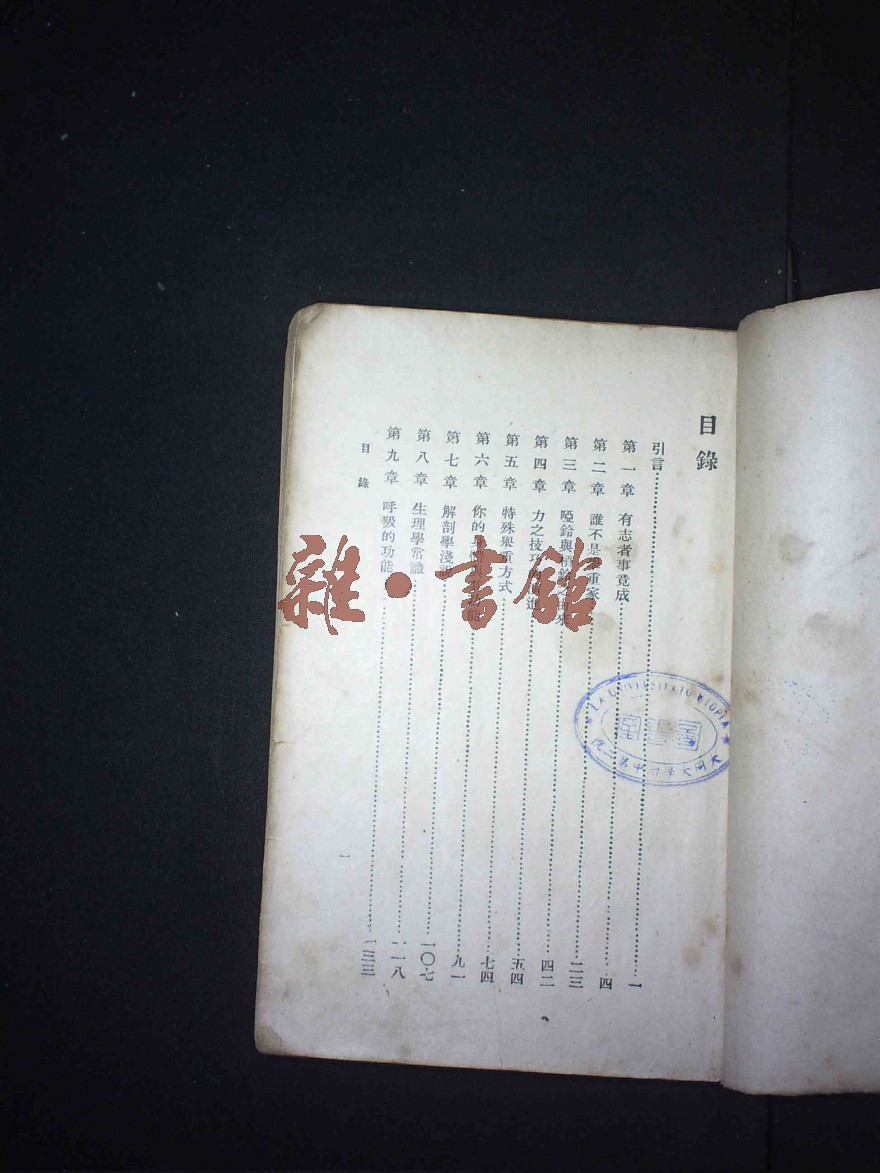 目錄
引言……一
第一章 有志者事竟成……四
第二章 誰不是舉重家……二三
第三章 啞鈴與槓鈴之由來……四二
第四章 力之技巧進……五四
第五章 特殊舉重方式……七四
第六章 你的身體……九一
第七章 解剖學淺……一〇七
第八章 生理學常識……一一八
第九章 呼吸的功能……一三三
目錄
一
雜·書館
LA UNIVERSITATO UTOPIA
圖書室
大同大學附中第二院